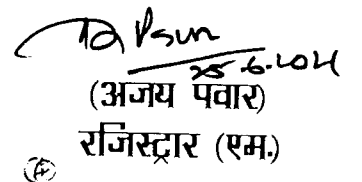 25.6.2021
(अजय पवार)
रजिस्ट्रार (एम.)